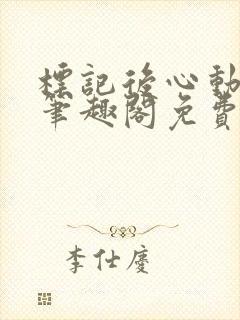 標記後心動
筆趣閣免費
李仕慶